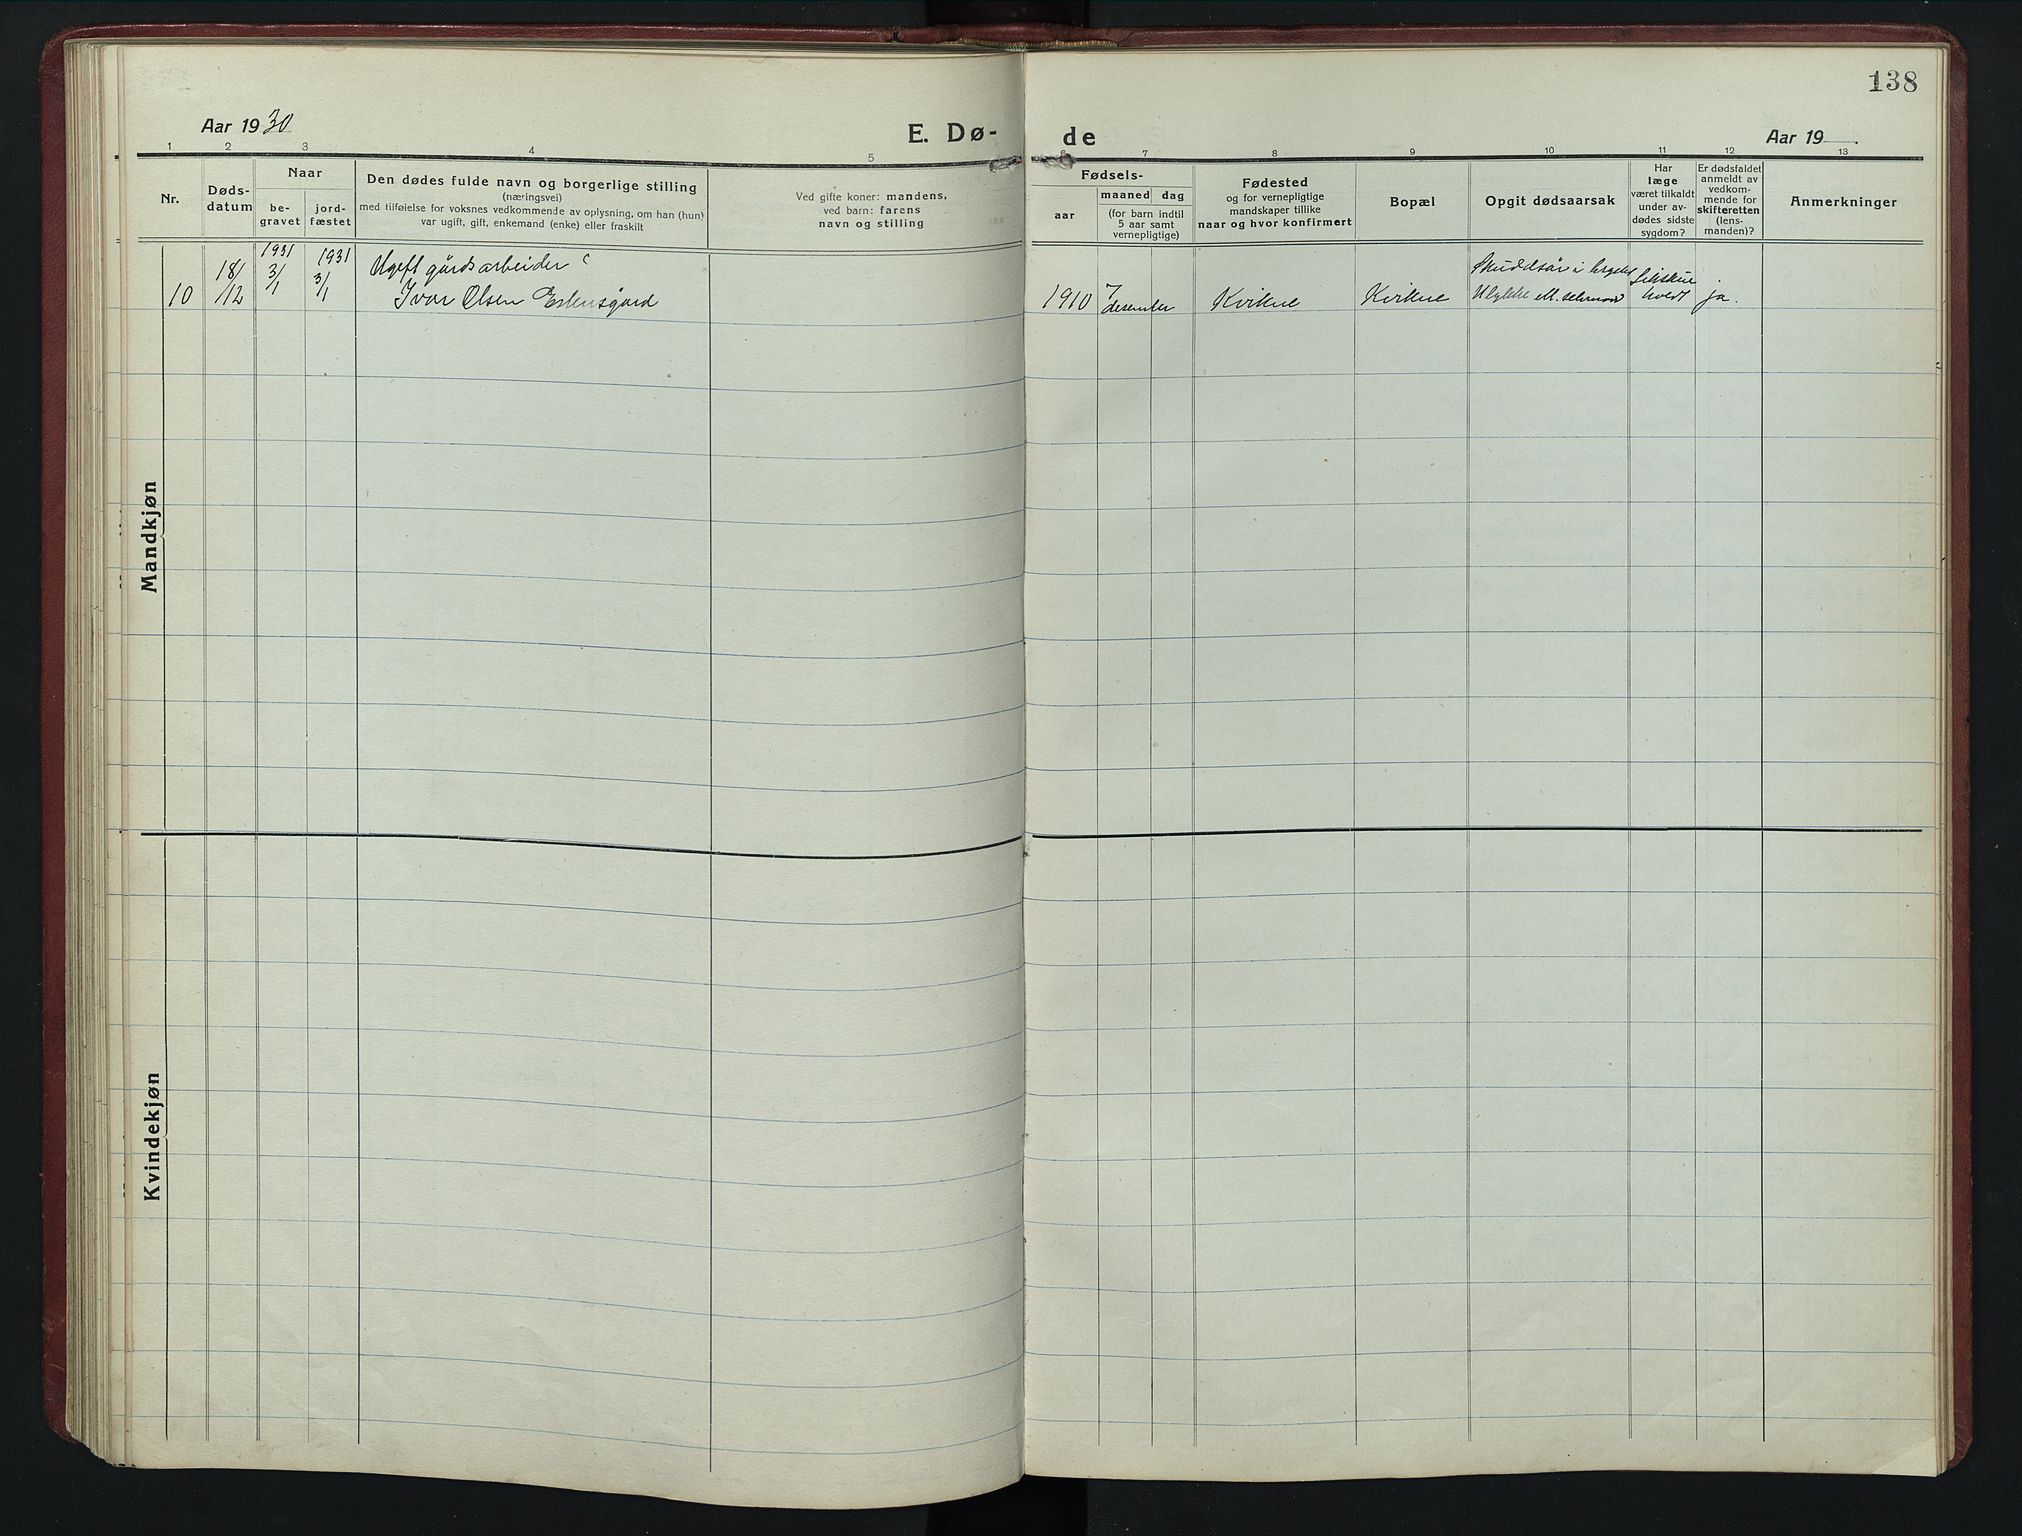 138
Aar 1930
E. Dø-
de
Aar 19
1 2 3 4 5 6 7 8 9 10 11 12 13
Nr.
Døds-
datum
Naar
be-
gravet
jord-
fæstet
Den dødes fulde navn og borgerlige stilling
(næringsvei)
med tilføielse for voksnes vedkommende av oplysning, om han (hun)
var ugift, gift, enkemand (enke) eller fraskilt
Ved gifte koner: mandens,
ved barn: farens
navn og stilling
Fødsels-
aar
maaned dag
(for barn indtil
5 aar samt
vernepligtige)
Fødested
og for vernepligtige
mandskaper tillike
naar og hvor konfirmert
Bopæl
Opgit dødsaarsak
Har
læge
været tilkaldt
under av-
dødes sidste
sygdom?
Er dødsfaldet
anmeldt av
vedkom-
mende for
skifteretten
(lens-
manden)?
Anmerkninger
1931 1931
18/ 3/ 3/ Ugift gårdsarbeider
10 /12 /1 /1 Ivar Olsen Estensgard
1910 7 desember Kvikne Kvikne
Skuddsår i
Ulykke ell. selvmord
Likskue
holdt
ja.
Mandkjøn
Kvindekjøn